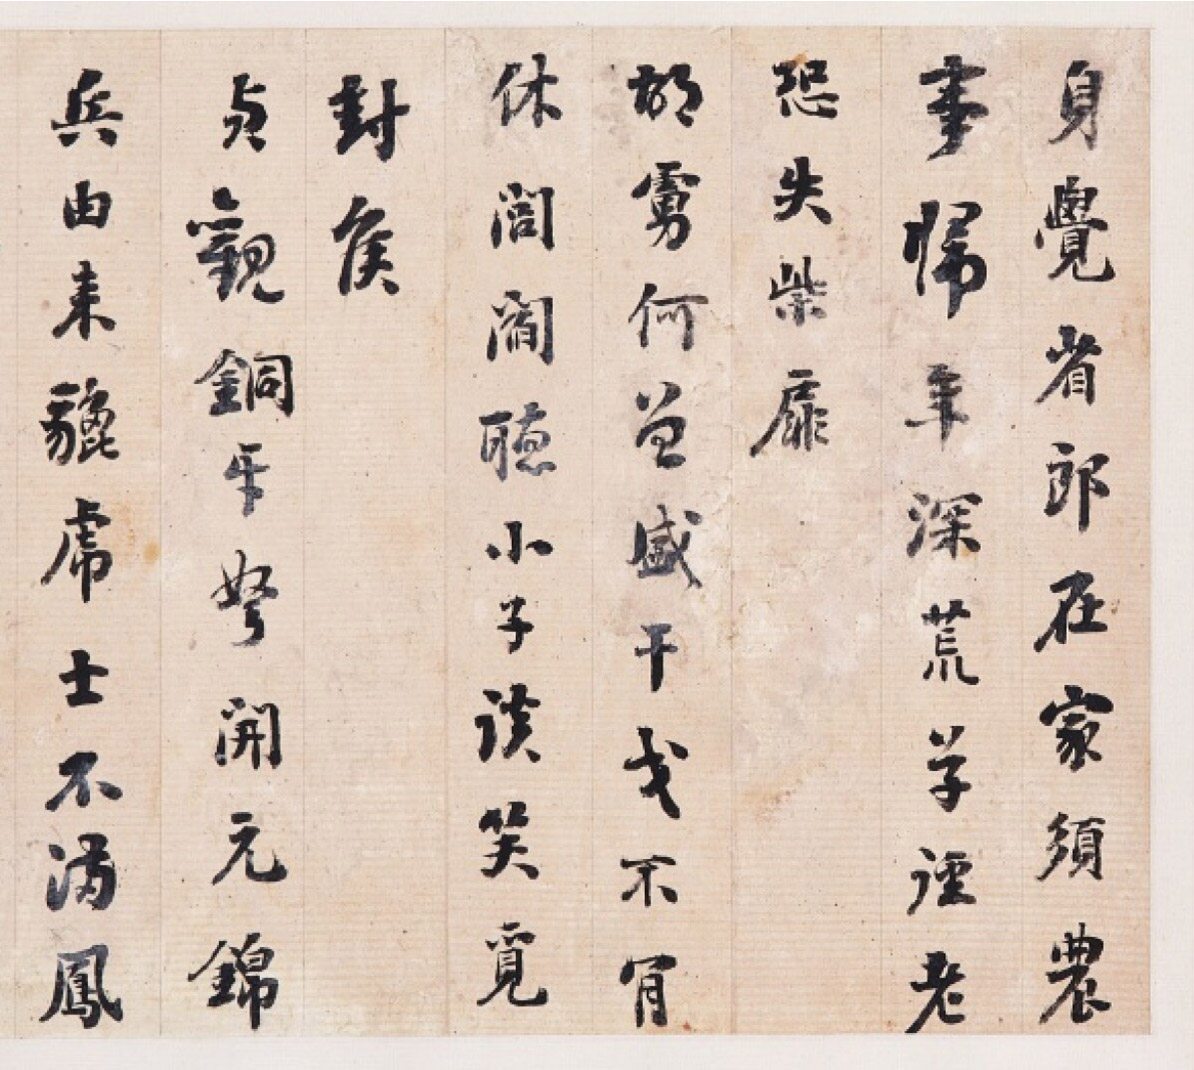 身覺省郎在家須農
事歸年深荒草逕老
恐失柴扉
胡虜何曾盛干戈不肯
休閭閻聽小子談笑覓
封侯
貞觀銅牙弩開元錦
兵由来貔虎士不滿鳳